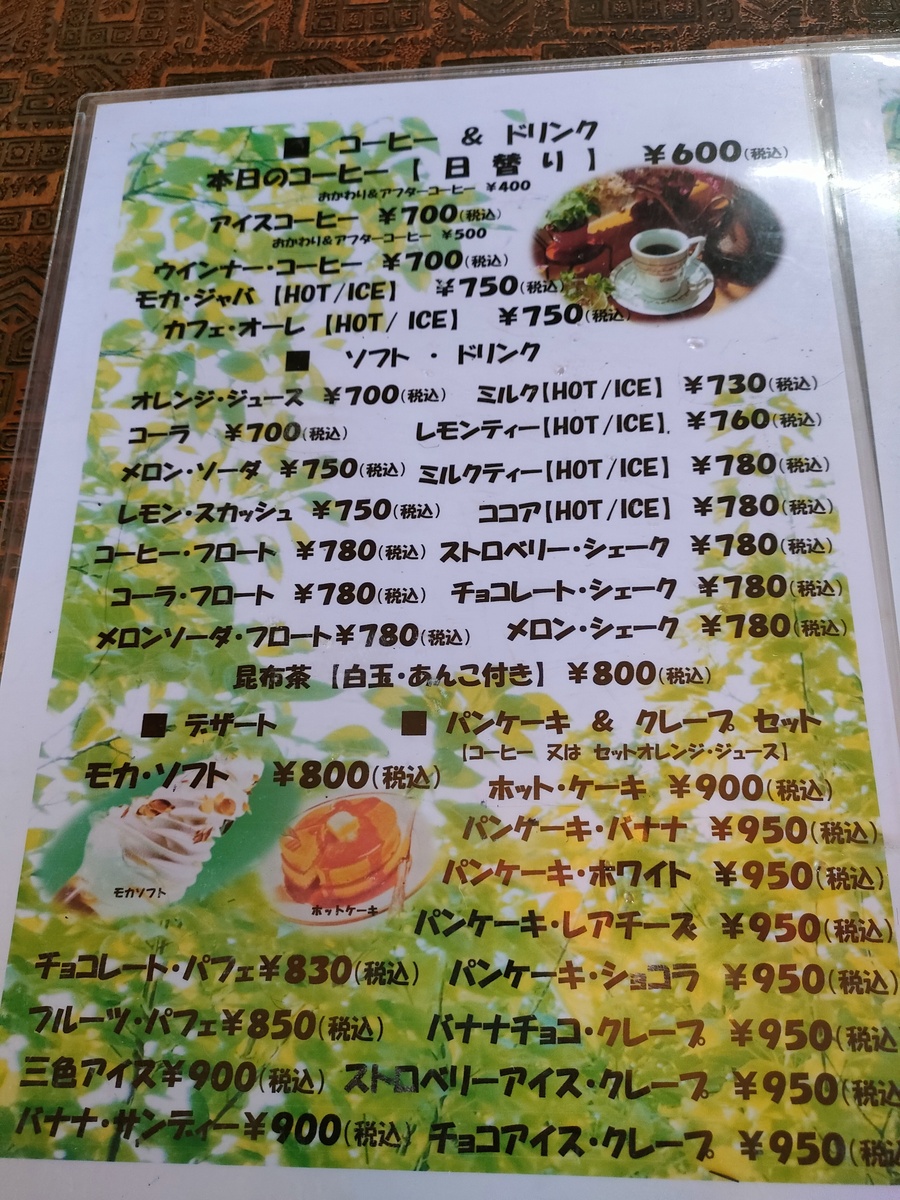 ■ コーヒー & ドリンク
本日のコーヒー【日替り】 ¥600(税込)
おかわり&アフターコーヒー ¥400
アイスコーヒー ¥700(税込)
おかわり&アフターコーヒー ¥500
ウインナー・コーヒー ¥700(税込)
モカ・ジャバ【HOT/ICE】 ¥750(税込)
カフェ・オーレ【HOT/ ICE】 ¥750(税込)
■ ソフト・ドリンク
オレンジ・ジュース ¥700(税込) ミルク【HOT/ICE】 ¥730(税込)
コーラ ¥700(税込) レモンティー【HOT/ICE】 ¥760(税込)
メロン・ソーダ ¥750(税込) ミルクティー【HOT/ICE】 ¥780(税込)
レモン・スカッシュ ¥750(税込) ココア【HOT/ICE】 ¥780(税込)
コーヒー・フロート ¥780(税込) ストロベリー・シェーク ¥780(税込)
コーラ・フロート ¥780(税込) チョコレート・シェーク ¥780(税込)
メロンソーダ・フロート¥780(税込) メロン・シェーク ¥780(税込)
昆布茶【白玉・あんこ付き】 ¥800(税込)
■ デザート
モカ・ソフト ¥800(税込)
モカソフト
ホットケーキ
チョコレート・パフェ¥830(税込)
フルーツ・パフェ¥850(税込)
三色アイス¥900(税込)
バナナ・サンディー¥900(税込)
■ パンケーキ & クレープ セット
【コーヒー 又は セットオレンジ・ジュース】
ホット・ケーキ ¥900(税込)
パンケーキ・バナナ ¥950(税込)
パンケーキ・ホワイト ¥950(税込)
パンケーキ・レアチーズ ¥950(税込)
パンケーキ・ショコラ ¥950(税込)
バナナチョコ・クレープ ¥950(税込
ストロベリーアイス・クレープ ¥950(税込
チョコアイス・クレープ ¥950(税込